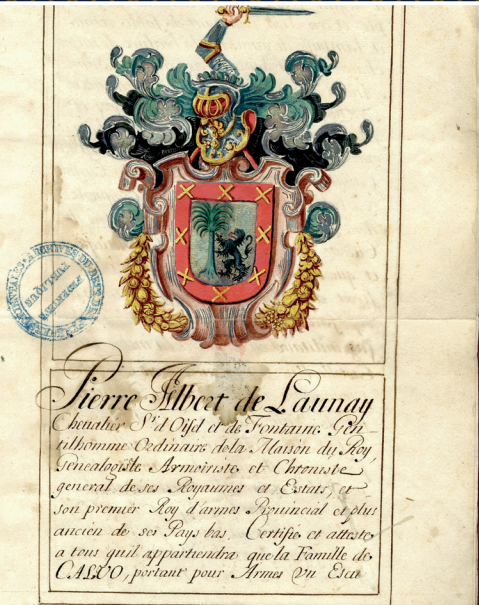 Pierre Albert de Launay
Chevalier Sr. d'Oisel et de Fontaine Gen-
tilhomme Ordinaire de la Maison du Roy,
Genealogiste Armoriste et Chroniste
general de ses Royaumes et Estats, et
son premier Roy d'armes Provincial et plus
ancien de ses Pays bas, Certifie et atteste
a tous qu'il appartiendra que la Famille de
CALVO, portant pour Armes Vn Escu